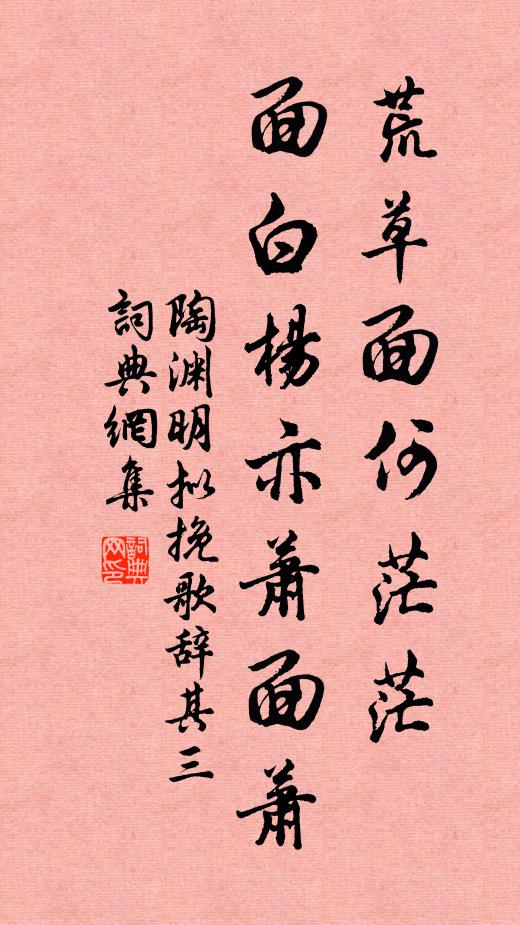 荒草面何茫茫
面白楊亦蕭面蕭
陶渊明拟挽歌辞其三
詞典網集
詞典网印